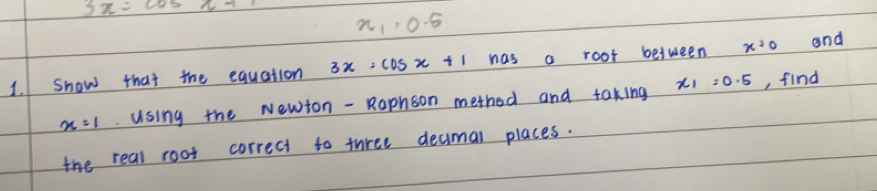 3x = cos x + 1
x₁ = 0.5
1. Show that the equation 3x = cos x + 1 has a root between x=0 and
x=1. Using the Newton - Raphson method and taking x₁ = 0.5, find
the real root correct to three decimal places.